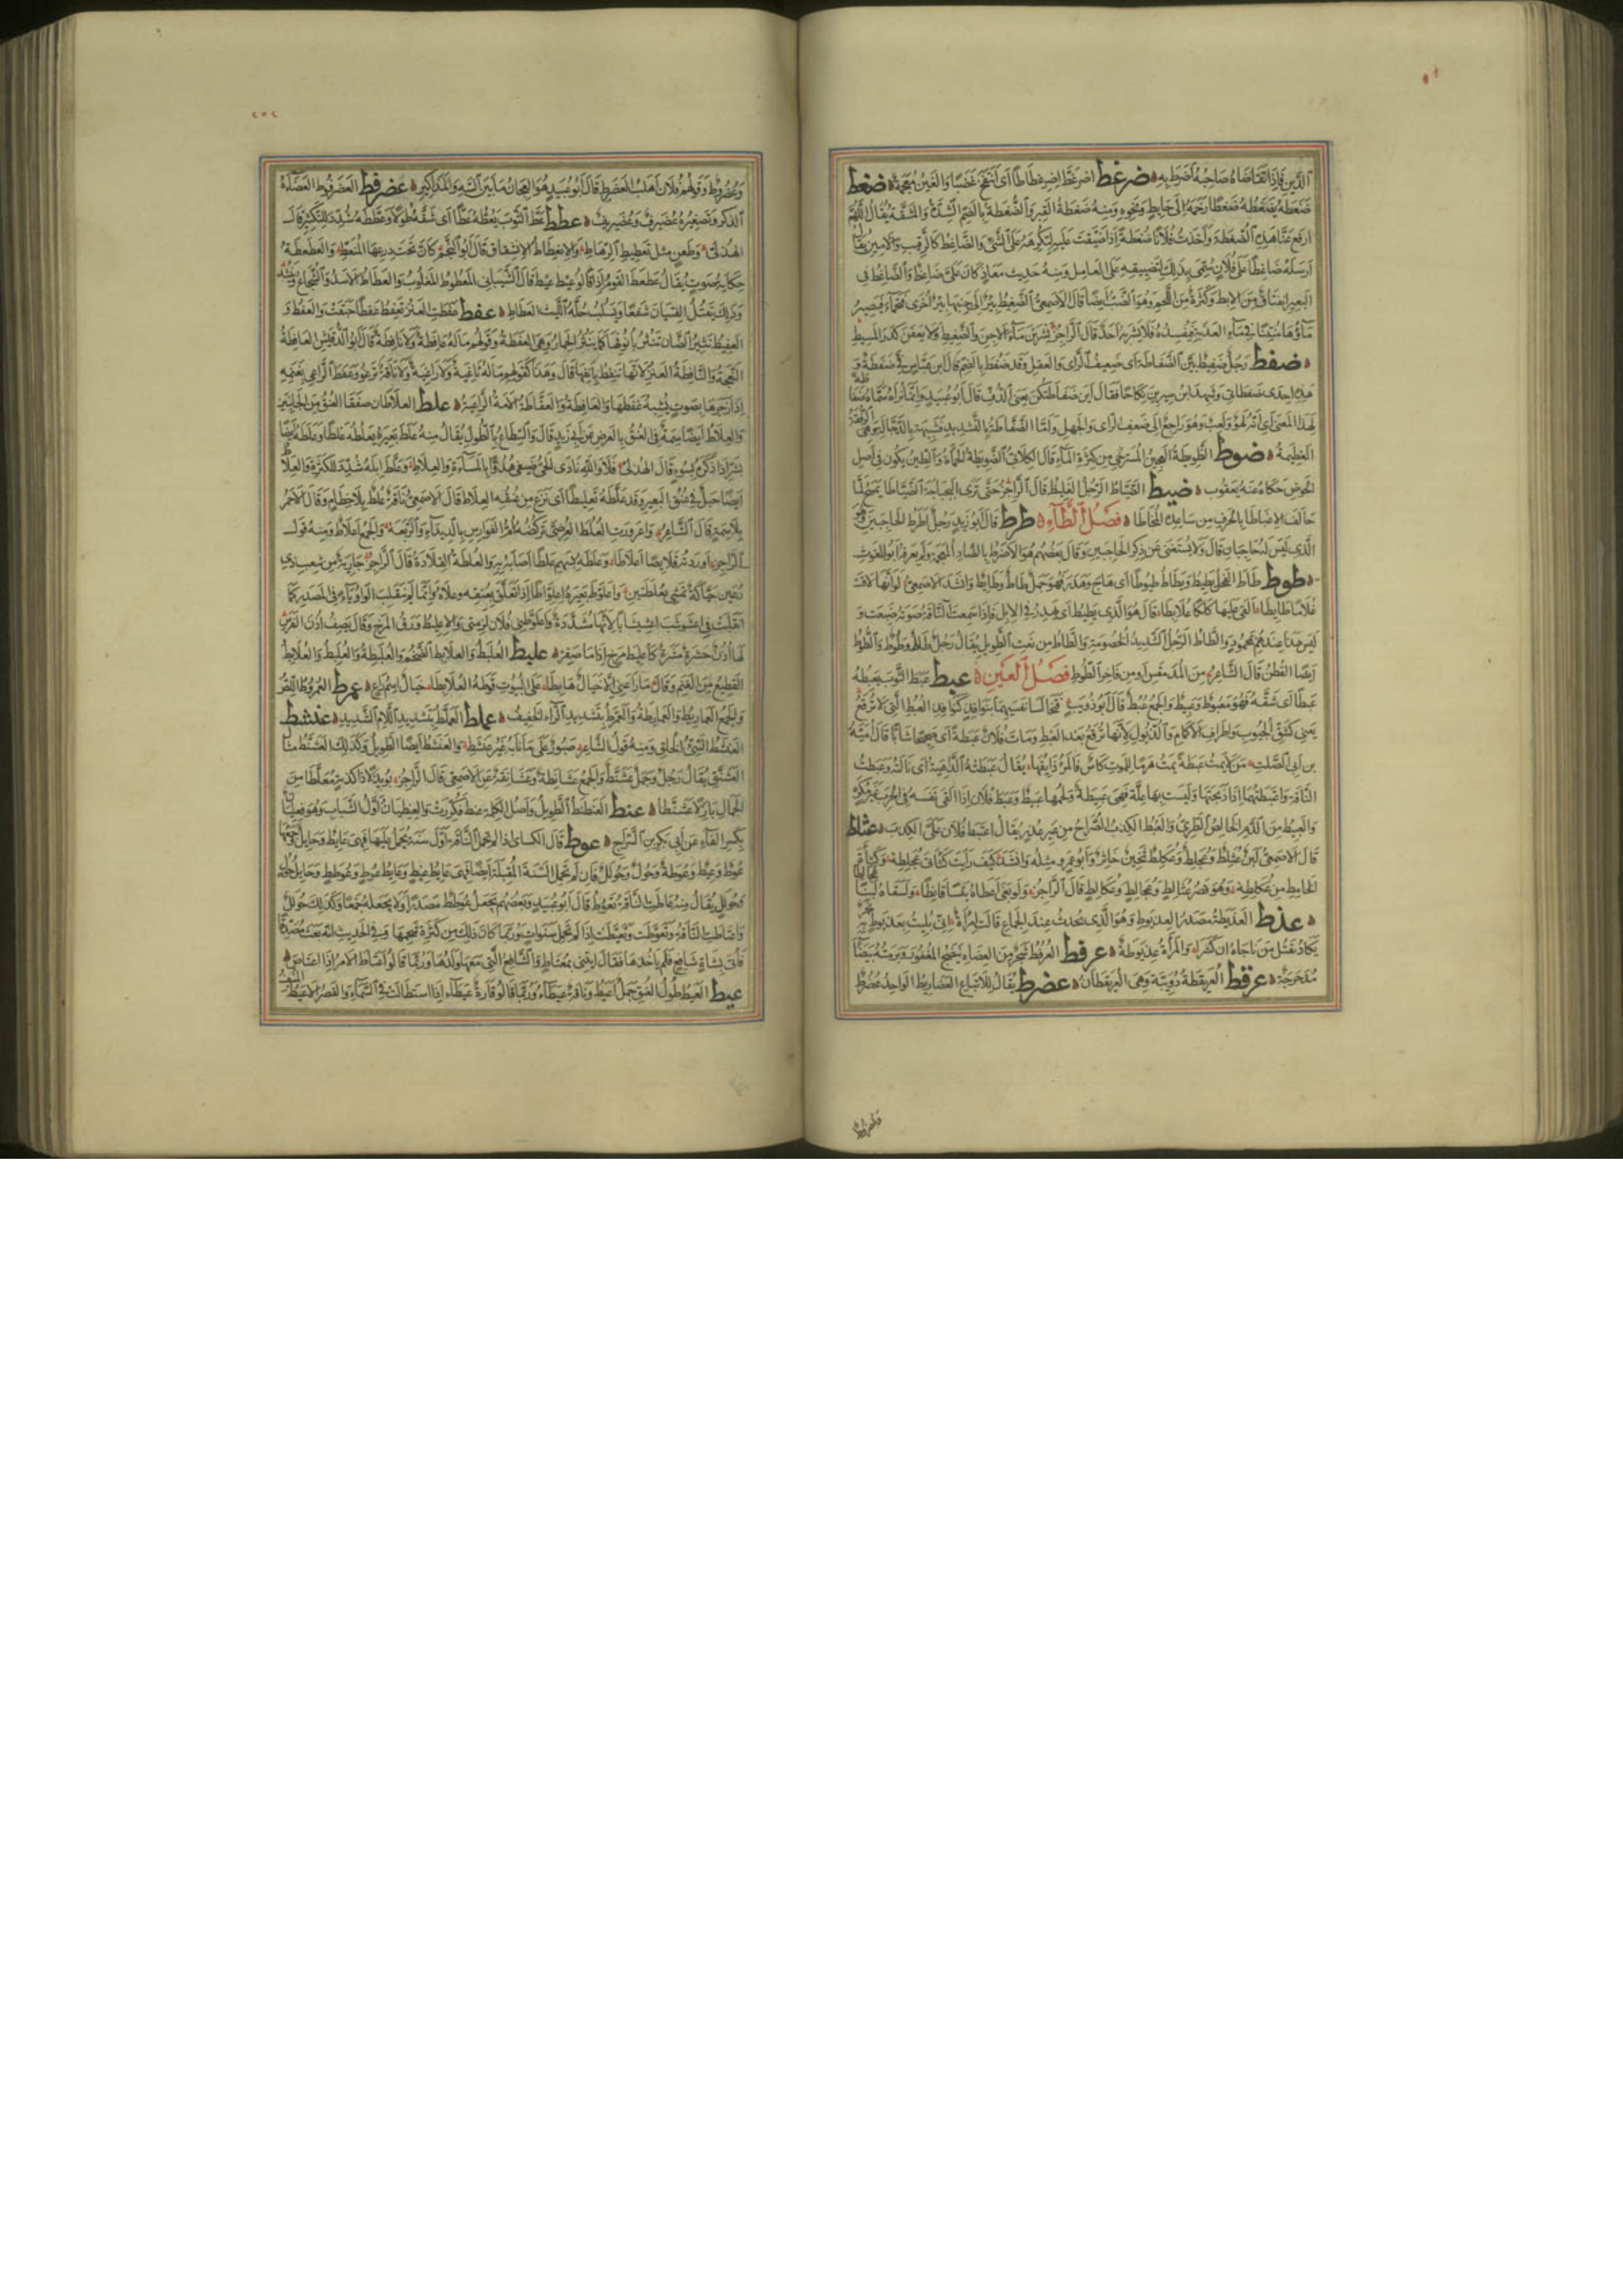 الدين فاذا تقاضاه صاحبه اضرط به ضرغط اضرغط اضرغطاطا اى انتفخ غضبا والغين معجمة ضغط
ضغطه يضغطه ضغطا زحمه الى حايط ونحوه ومنه ضغطة القبر والضغطة بالضم الشدة والمشقة يقال اللهم
ارفع عنا هذه الضغطة واخذت فلانا ضغطة اذا ضيقت عليه لتكرهه على الشئ والضاغط كالرقيب والامين يقال
ارسله ضاغطا على فلان سمى بذلك لتضييقه على العامل ومنه حديث معاذ كان على ضاغط والضاغط فى
البعير انفتاق من الابط وكثرة من اللحم وهو الضب ايضا قال الاصمعى الضغيط بئر الى جنبها بئر اخرى فتحمأ فيصير
ماؤها منتنا فى ماء العذبة فيفسده فلا يشربه احد قال الراجز يشربن ماء الاجن والضغيط ولا يعفن كدر المسيط
ضفط رجل ضفيط بين الضفاطة اى ضعيف الراى والعقل وقد ضفط بالضم قال ابن عباس فى ضفطة و
هذه احدى ضفطاتى وشهد ابن سيرين نكاحا فقال اين ضفاطتكن يعنى الدف قال ابو عبيد وانما نراه سماه ضفاطة
لهذا المعنى اى انه لهو ولعب وهو راجع الى ضعف الراى والجهل واما الضفاطة بالتشديد فشبيهة بالدجالة وهى الرفقة
العظيمة ضوط الضويطة العجين المسترخى من كثرة الماء قال الكلابى الضويطة الحمأة والطين يكون فى اصل
الحوض حكاه عنه يعقوب ضيط الضياط الرجل الغليظ قال الراجز حتى ترى البجباجة الضياطا يمسح لما
حالف الاغباطا بالحرف من ساعده المخاطا فصل الطاء طرط قال ابو زيد رجل اطرط الحاجبين وهو
الذى ليس له حاجبان قال ولا يستغنى عن ذكر الحاجبين وقال بعضهم هو الاضرط بالضاد المعجمة ولم يعرفه ابو الغوث
طوط طاط الفحل يطيط ويطاط طيوطا اى هاج وهدر فهو جمل طاط وطايط وانشد الاصمعى لو انها لاقت
غلاما طايطا القى عليها كلكلا علابطا قال هو الذى يطيط اى يهدر فى الابل فاذا سمعت الناقة صوته ضبعت و
ليس هذا عندهم بمحمود والطاط الرجل الشديد الخصومة والطاط من نعت الطويل يقال رجل طاط وطوط والطوط
ايضا القطن قال الشاعر من المدمقس او من فاخر الطوط فصل العين عبط عبط الثوب يعبطه
عبطا اى شقه فهو معبوط وعبيط والجمع عبط قال ابو ذويب فتخالسا نفسيهما بنوافذ كنوافذ العبط التى لا ترقع
يعنى كشق الجيوب واطراف الاكمام والذيول لانها ترقع بعد العبط ومات فلان عبطة اى صحيحا شابا قال امية
بن ابى الصلت من لا يمت عبطة يمت هرما للموت كاس فالمرء ذايقها يقال عبطته الداهية اى نالته وعبطت
الناقة واعتبطتها اذا ذبحتها وليست بها علة فهى عبيطة ولحمها عبيط وعبط فلان اذا القى نفسه فى الحرب غير مكره
والعبيط من الدم الخالص الطرى والعبط الكذب الصراح من غير عذر يقال اعتبط فلان على الكذب عثلط
قال الاصمعى لبن عثلط وعجلط وعكلط ثخين خاثر وابو عمرو مثله وانشد كيف رايت كثاتى عجلطه وكثاة
الخامط من عكلطه وهو قصر عثالط وعجالط وعكالط قال الراجز ولو بغى اعطاه تيسا قافطا ولسقاه لبنا
عذط العذيطة مصدر العذيوط وهو الذى يحدث عند الجماع قالت امراة انى بليت بعذيوط به بخر
يكاد يقتل من ناجاه ان كشرا والمراة عذيوطة عرفط العرفط شجر من العضاه ينضح المغفور وبرمته بيضا
مدحرجة عرقط العريقطة دويبة وهى العريقطان عضرط يقال للاتباع العضاريط الواحد عضرط
وعضروط وقولهم فلان اهلب العضرط قال ابو عبيد هو العجان ما بين السه والمذاكير عضرفط العضرفوط العضاءة
الذكر وتصغيره عضيرف وعضيريف عطط عط الثوب يعطه عطا اى شقه طولا وعططه شدد للتكثير قال
الهذلى وطعن مثل تعطيط الرهاط والانعطاط الانشقاق قال ابو النجم كان تحت درعها المنعط والعطعطة
حكاية صوت يقال عطعط القوم اذا قالوا عيط عيط قال الشيبانى المعطوط المغلوب والعطاط الاسد والشجاع
وذلك يقتل الفتيان شفعا ويسلب حلة الليث العطاط عفط عفطت العنز تعفط عفطا حبقت والعفط و
العفيط نثير الضان تنثر بانوفها كما ينثر الحمار وهى العفطة وقولهم ما له عافطة ولا نافطة قال ابو الدقيش العافطة
النعجة والنافطة العنز لانها تنفط بانفها قال وهذا كقولهم ما له ثاغية ولا راغية ولا ناقة ترغو وعفط الراعى بغنمه
اذا زجرها بصوت يشبه عفطها والعافطة والعفاطة الامة الراعية علط العلاطان صفقا العنق من الجانبين
والعلاط ايضا سمة فى العنق بالعرض عن ابى زيد قال والسطاع بالطول يقال منه علط بعيره يعلطه علطا وعلطه ايضا
بشر اذا ذكره بسوء قال الهذلى فلا والله نادى الحى ضيفى هدوا بالمساءة والعلاط وعلط ابله شدد للكثرة والعلاط
ايضا حبل فى عنق البعير وقد علطه تعليطا اى نزع من عنقه العلاط قال الاصمعى ناقة علط بلا خطام وقال الاحمر
بلا سمة قال الشاعر واعرورت العلط العرضى تركضه ام الفوارس بالديداء والربعة والجمع اعلاط ومنه قول
الراجز اوردته قلايصا اعلاطا وعلطه بسهم علطا اصابه به والعلطة القلادة قال الراجز جارية من شعب ذى
رعين حياكة تمشى بعلطتين واعلوط بعيره اعلواطا اذا تعلق بعنقه وعلاه وانما لم تقلب الواو ياء فى المصدر كما
انقلبت فى اعشوشب اعشيشابا لانها مشددة واعلوطنى فلان لزمنى والاعليط ورق المرخ وقال يصف اذن الفرس
لها اذن حشرة مشرة كاعليط مرخ اذا ما صفر علبط العلبط والعلابط الضخم والعلبطة والعلبط والعلابط
القطيع من الغنم وقال ما راعنى الا خيال هابطا على البيوت قوطه العلابطا خيال اسم راع عمرط العمروط اللص
والجمع العماريط والعمارطة والعمرط بتشديد الراء الخفيف عملط العملط بتشديد اللام الشديد عنشط
العنشط السيئ الخلق ومنه قول الشاعر صبور على ما نابه غير عنشط والعنشط ايضا الطويل وكذلك العشنط مثال
العشنق يقال رجل وجمل عشنط والجمع عشانطة وعشانقة عن الاصمعى قال الراجز بويزلا ذا كدنة معلطا من
الجمال بازلا عشنطا عنط العنطنط الطويل واصل الكلمة عنط فكررت والعنطيان اول الشباب وهو فعليان
بكسر الفاء عن ابى بكر بن السراج عوط قال الكسائى اذا لم تحمل الناقة اول سنة يحمل عليها فهى عايط وحايل
عوط وعيط وعوطط وحول وحولل فان لم تحمل السنة المقبلة ايضا فهى عايط عيط وعايط عوط وعوطط وحايل حول
وحولل يقال منه عاطت الناقة تعوط قال ابو عبيد وبعضهم يجعل عوطط مصدرا ولا يجعله جمعا وكذلك حولل
واعتاطت الناقة وتعوطت وتعيطت اذا لم تحمل سنوات وربما كان ذلك من كثرة شحمها وفى الحديث انه بعث مصدقا
فاتى بشاة شافع فلم ياخذها فقال ايتنى بمعتاط والشافع التى معها ولدها وربما قالوا اعتاط الامر اذا اعتاص
عيط العيط طول العنق جمل اعيط وناقة عيطاء وربما قالوا قارة عيطاء اذا استطالت فى السماء والقصر الاعيط